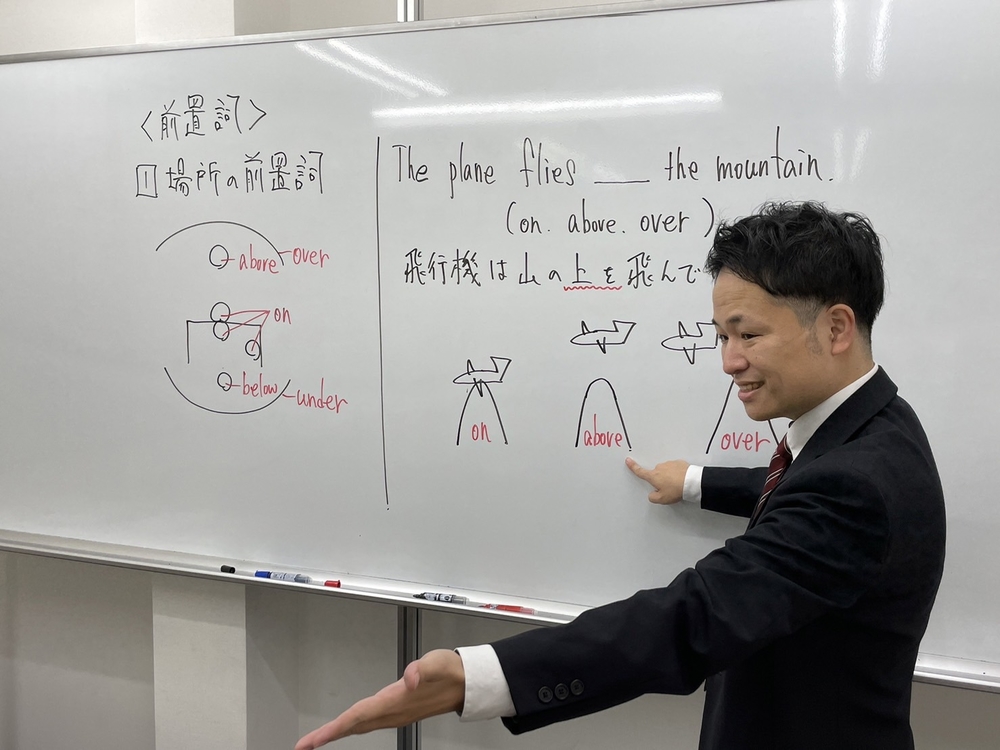 〈前置詞〉
1 場所の前置詞
above over
on
below under
The plane flies ___ the mountain.
(on. above. over)
飛行機は山の上を飛んで
on above over